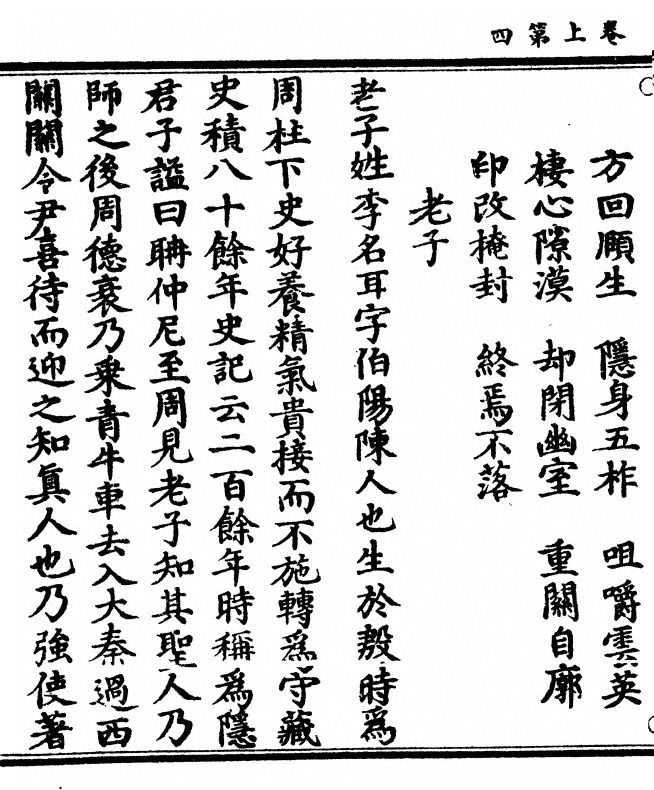 卷上第四
方回頤生 隱身五柞 咀嚼雲英
棲心隙漠 却閉幽室 重關自廓
印改掩封 終焉不落
老子
老子姓李名耳字伯陽陳人也生於殷時爲
周柱下史好養精氣貴接而不施轉爲守藏
史積八十餘年史記云二百餘年時稱爲隱
君子謚曰聃仲尼至周見老子知其聖人乃
師之後周德衰乃乗青牛車去入大秦過西
關關令尹喜待而迎之知眞人也乃強使著